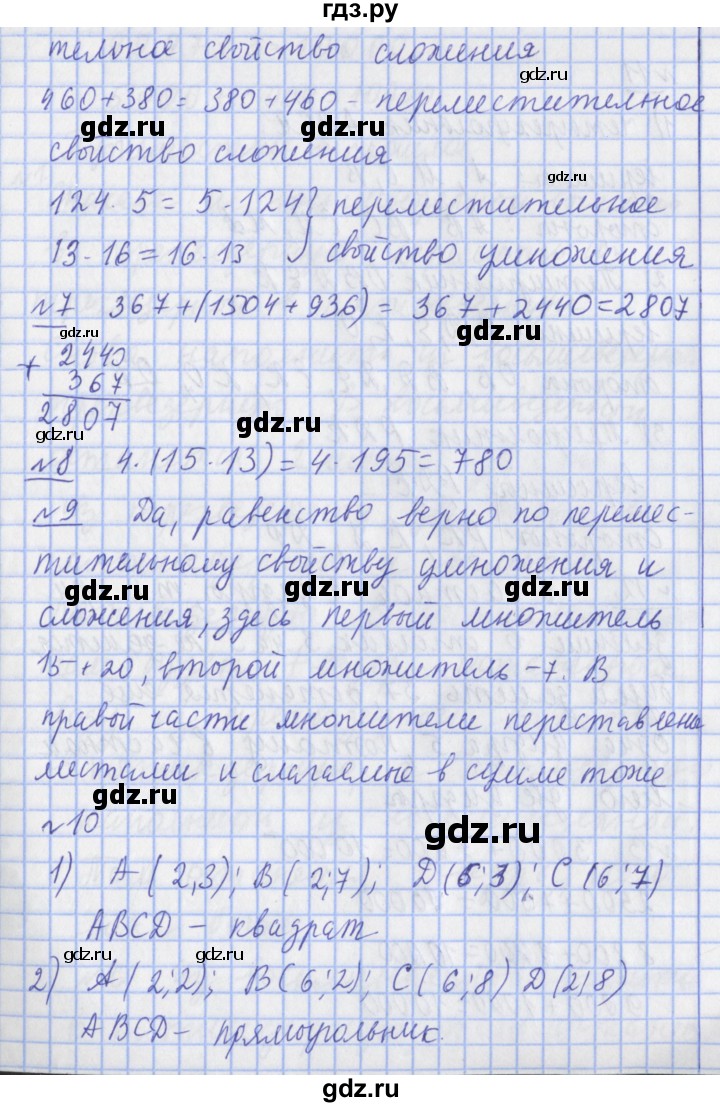 гдз.ру
тельное свойство сложения
460+380= 380+460 - переместительное
свойство сложения
124·5=5·124 } переместительное
13·16=16·13 } свойство умножения
№7 367+(1504+936)= 367+2440=2807
+ 2440
367
2807
№8 4·(15·13)=4·195=780
№9 Да, равенство верно по перемес-
тительному свойству умножения и
сложения, здесь первый множитель
15+20, второй множитель -7. В
правой части множители переставлены
местами и слагаемые в сумме тоже
№10
1) А(2,3); В(2;7); D(6;3); С(6;7)
ABCD - квадрат
2) А(2;2); В(6;2); С(6;8) D(2;8)
ABCD - прямоугольник.
gdz.ru